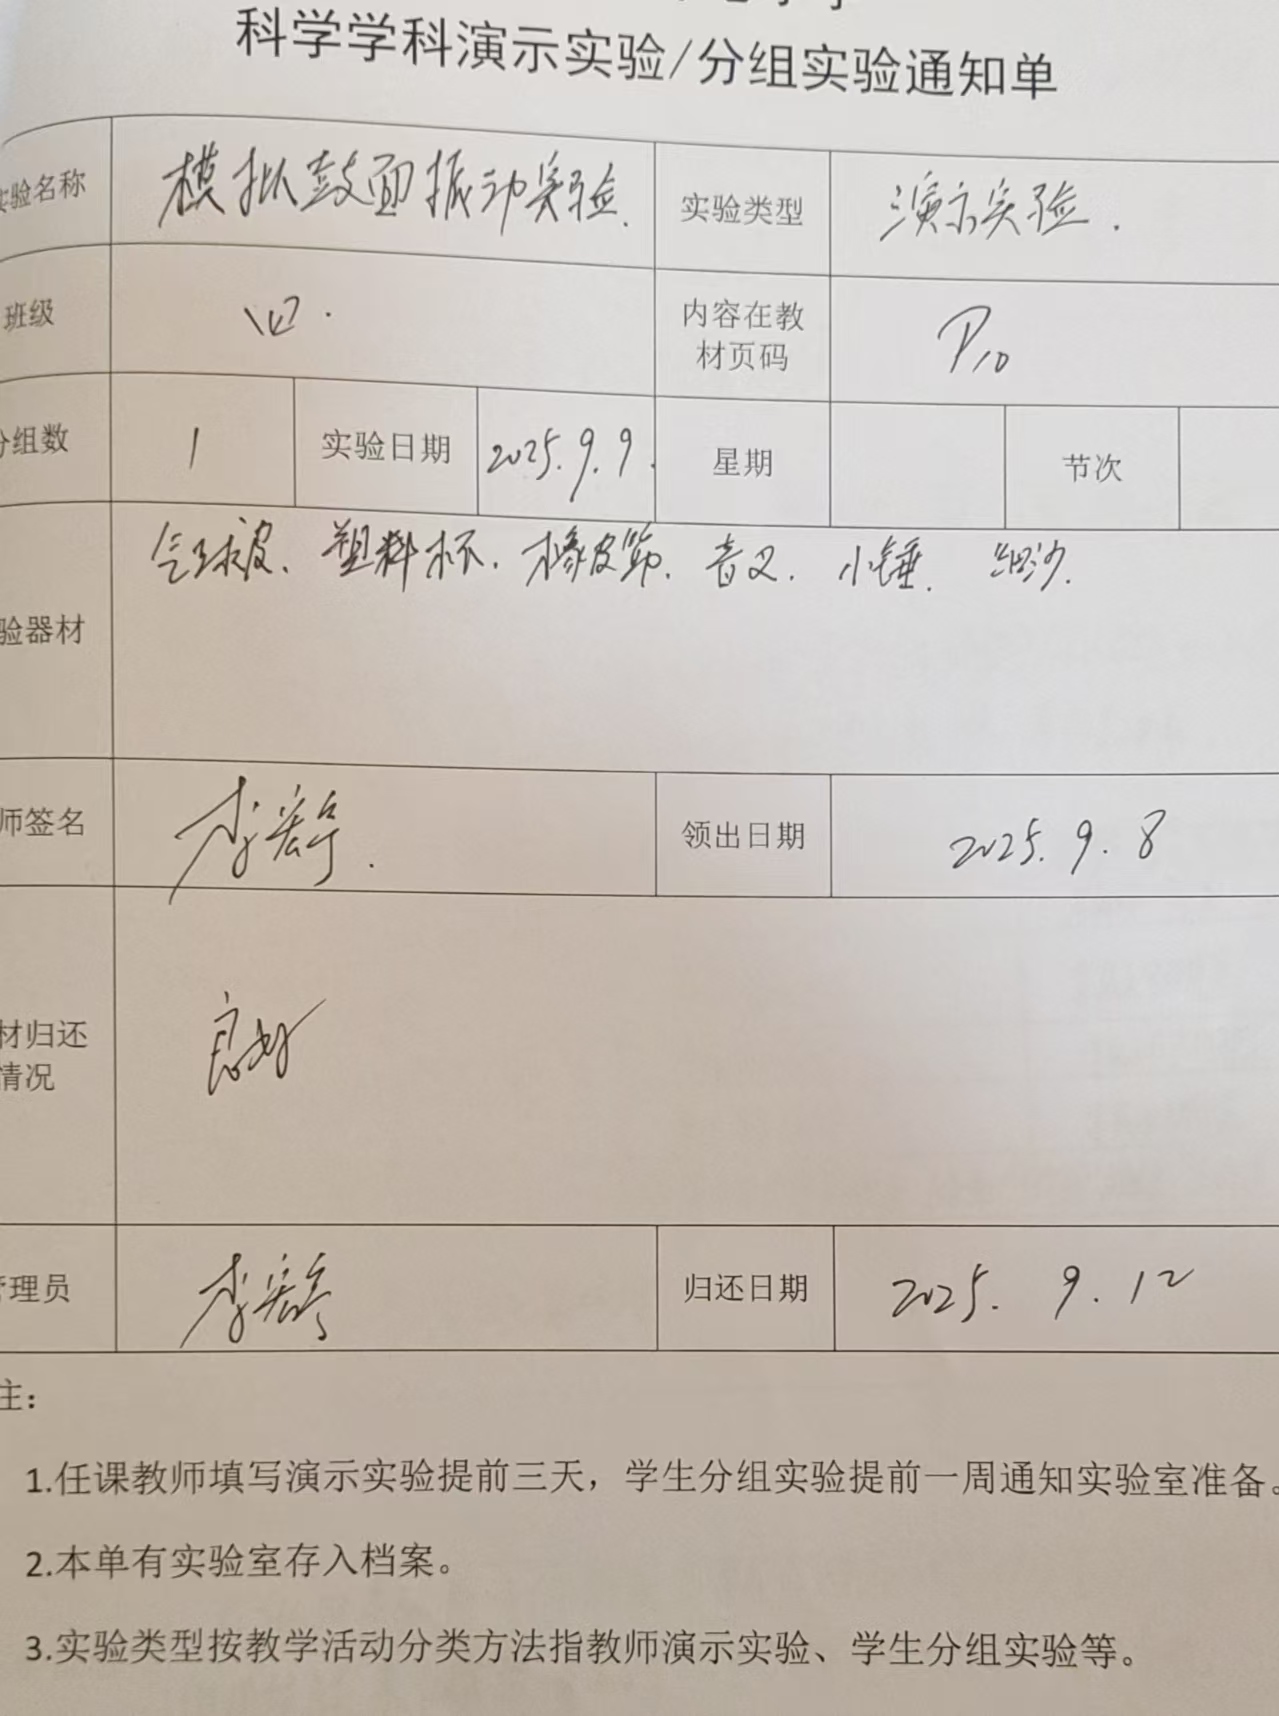 科学学科演示实验/分组实验通知单
实验名称 模拟鼓面振动实验. 实验类型 演示实验.
班级 四. 内容在教材页码 P10
分组数 1 实验日期 2025.9.9. 星期 节次
验器材 气球皮、塑料杯、橡皮筋、音叉、小锤、细沙.
师签名 领出日期 2025.9.8
材归还情况 良好
管理员 归还日期 2025.9.12
注：
1.任课教师填写演示实验提前三天，学生分组实验提前一周通知实验室准备。
2.本单有实验室存入档案。
3.实验类型按教学活动分类方法指教师演示实验、学生分组实验等。